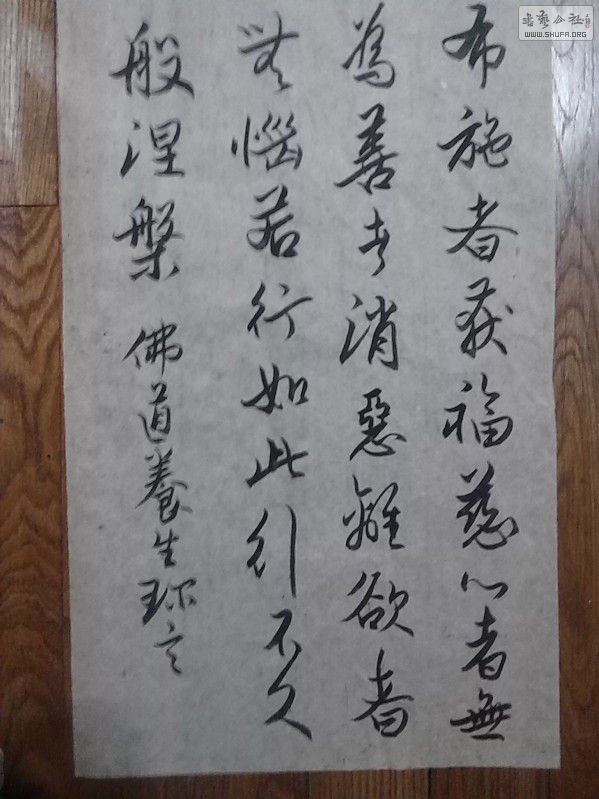 布施者获福慈心者無
為善者消惡離欲者
無惱若行如此行不久
般涅槃 佛道養生珎言
書藝公社
WWW.SHUFA.ORG